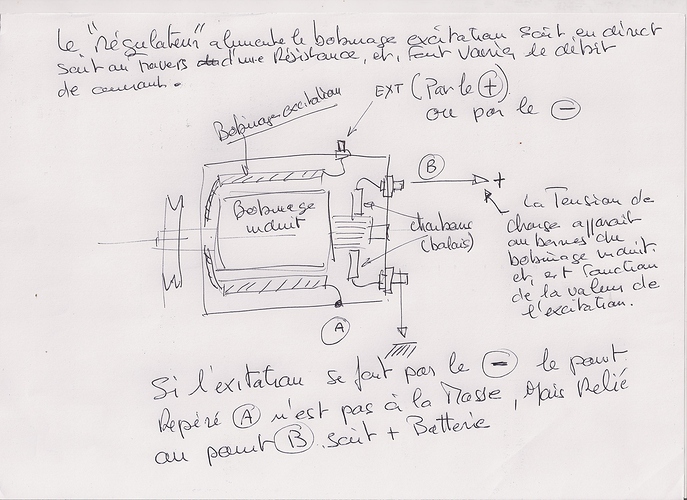 Le "régulateur" alimente le bobinage excitation soit en direct
soit au travers d'une Résistance, et, fait varier le débit
de courant.
EXT (Par le +)
ou par le -
Bobinage excitation
B
+
Bobinage
induit
charbons
(balais)
La Tension de
charge apparait
au bornes du
bobinage induit.
et, est fonction
de la valeur de
l'excitation.
A
Si l'exitation se fait par le - le point
Repéré A n'est pas à la Masse, Mais Relié
au point B. soit + Batterie